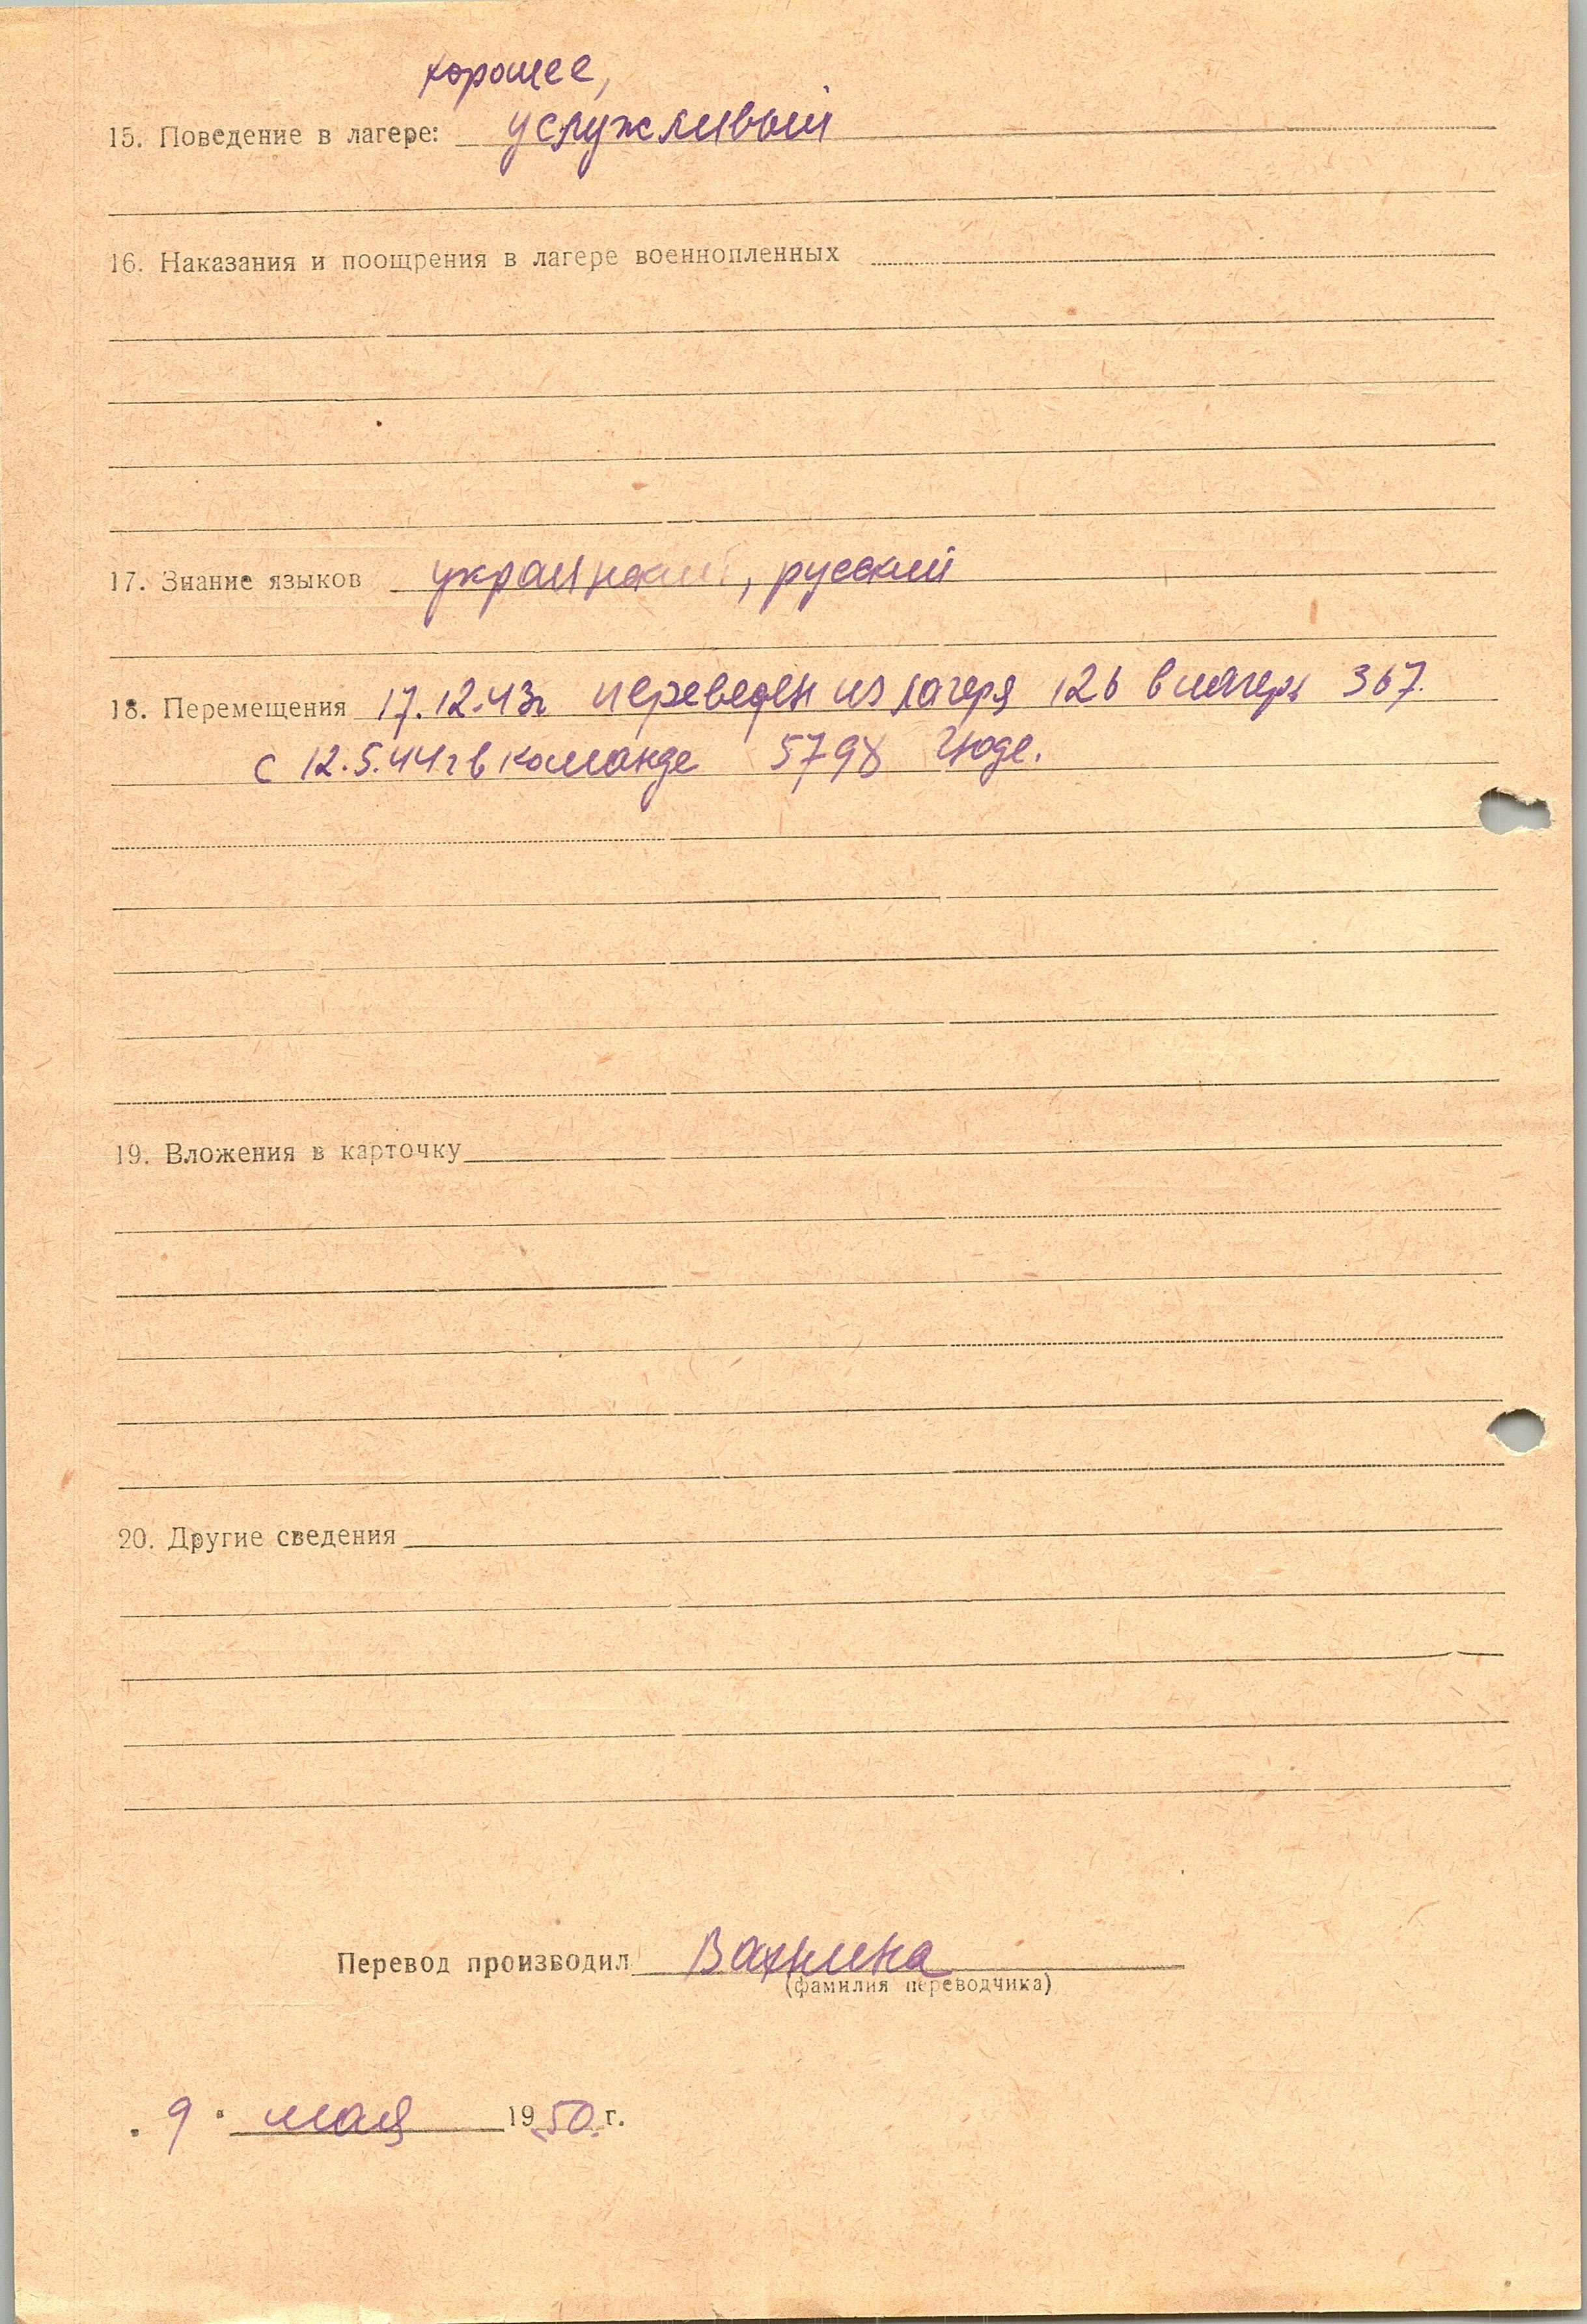 хорошее,
15. Поведение в лагере: услужливый
16. Наказания и поощрения в лагере военнопленных
17. Знание языков украинский, русский
18. Перемещения 17.12.43г переведен из лагеря 126 в лагерь 367.
с 12.5.44г в команде 5798
19. Вложения в карточку
20. Другие сведения
Перевод производил Вахнина
(фамилия переводчика)
„9“ мая 1950 г.